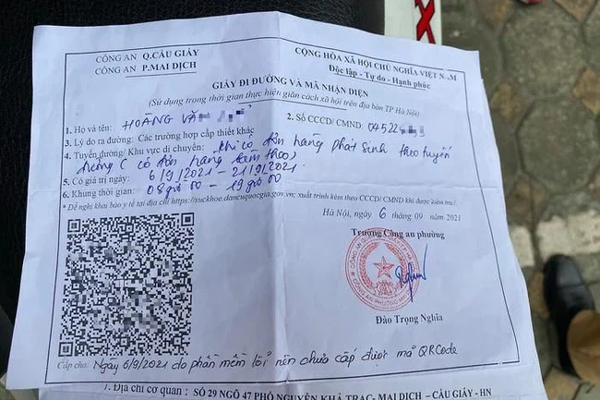 CÔNG AN Q.CẦU GIẤY
CÔNG AN P.MAI DỊCH
CỘNG HÒA XÃ HỘI CHỦ NGHĨA VIỆT NAM
Độc lập - Tự do - Hạnh phúc
GIẤY ĐI ĐƯỜNG VÀ MÃ NHẬN DIỆN
(Sử dụng trong thời gian thực hiện giãn cách xã hội trên địa bàn TP Hà Nội)
1. Họ và tên: HOÀNG VĂN
2. Số CCCD/ CMND: 04522
3. Lý do ra đường: Các trường hợp cấp thiết khác
4. Tuyến đường/ Khu vực di chuyển: khi có đơn hàng phát sinh theo tuyến
đường (có đơn hàng kèm theo)
5. Có giá trị ngày: 6/9/2021 - 21/9/2021
6. Khung thời gian: 08 giờ 00 - 19 giờ 00
* Đề nghị khai báo y tế tại địa chỉ https://suckhoe.dancuquocgia.gov.vn; xuất trình kèm theo CCCD/ CMND khi được kiểm tra./.
Hà Nội, ngày 6 tháng 09 năm 2021
Trưởng Công an phường
Đào Trọng Nghĩa
Cấp chú: Ngày 6/9/2021 do phần mềm lỗi nên chưa cấp được mã QRCode
7. Địa chỉ cơ quan: SỐ 29 NGÕ 47 PHỐ NGUYỄN KHẢ TRẠC- MAI DỊCH – CẦU GIẤY - HN